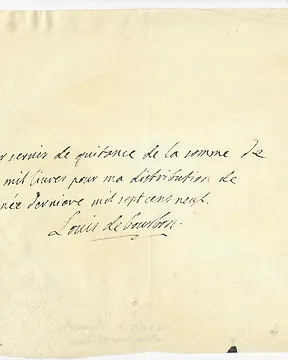 servir de quitance de la somme de
mil livres pour ma distribution de
née derniere mil sept cens neuf.
Louis de bourbon.